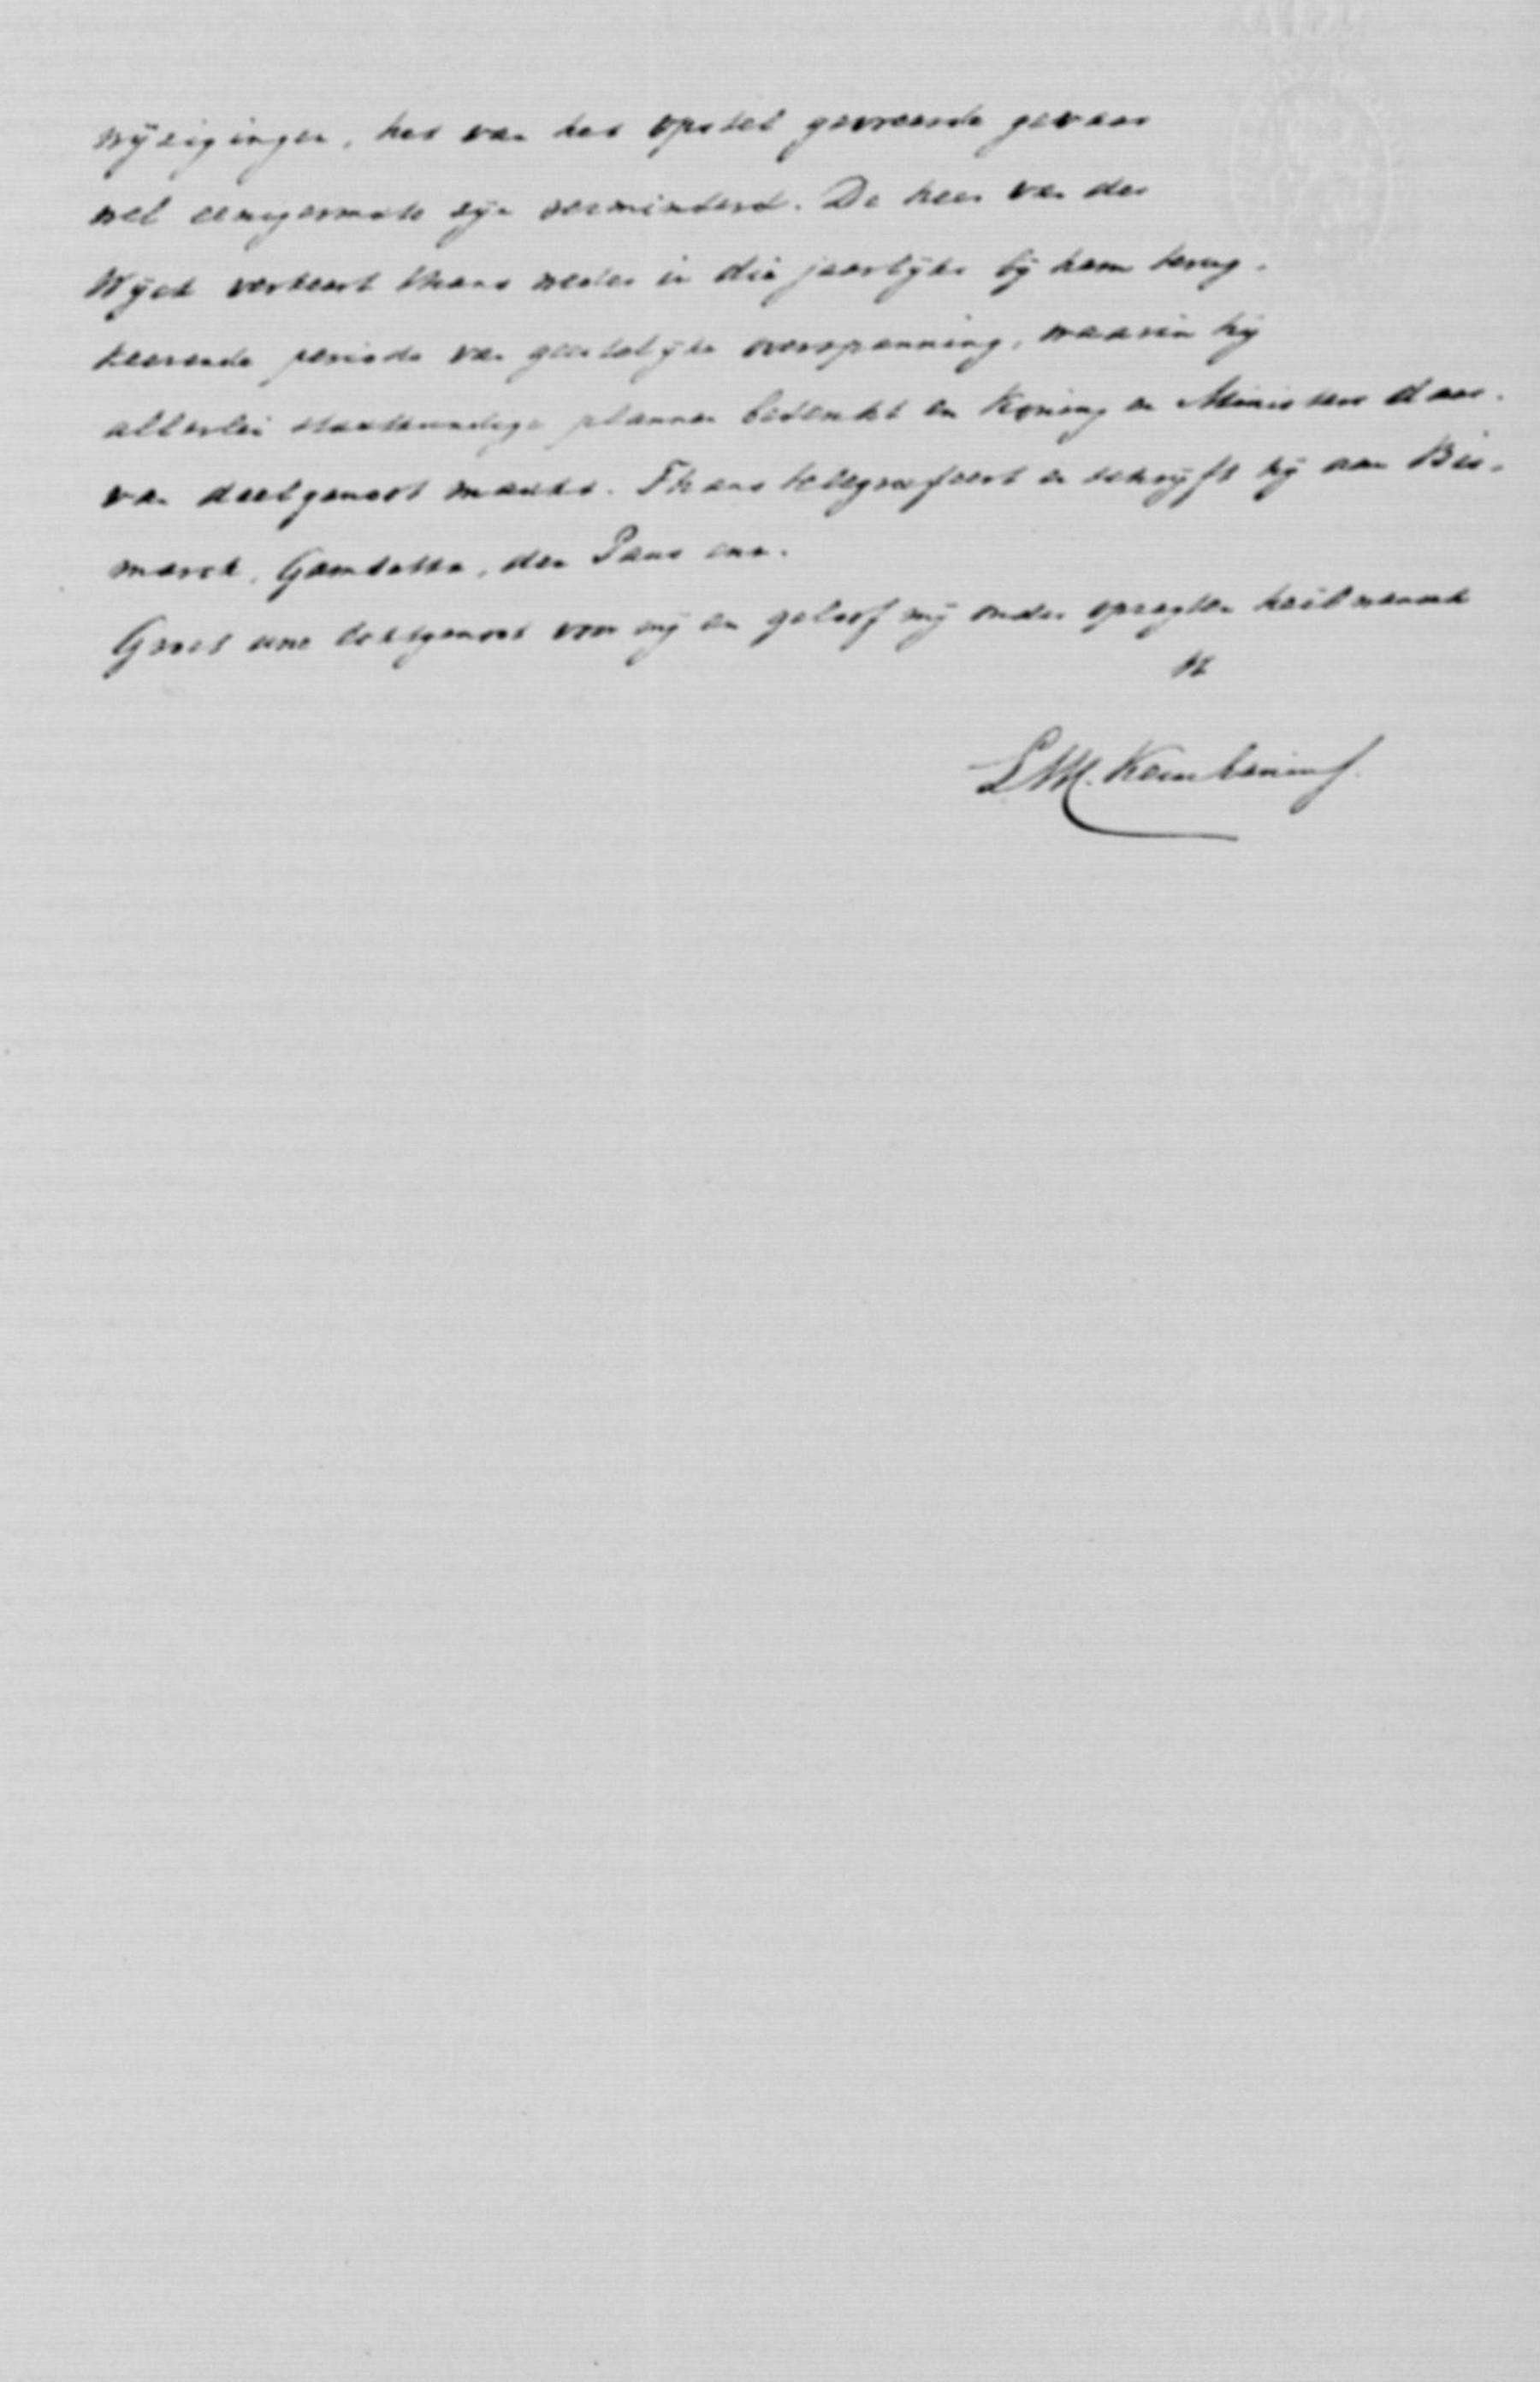 wijzigingen, het van het opstel gevreesde gevaar
wel eenigermate zijn verminderd. De heer van der
Wijck verkeert thans weder in die jaarlijks bij hem terug-
keerende periode van geestelijke overspanning, waarin hij
allerlei staatkundige plannen bedenkt en Koning en Ministers daar-
van deelgenoot maakt. Thans telegrafeert en schrijft hij aan Bis-
marck, Gambetta, den Paus enz.
Groet uwe echtgenoot van mij en geloof mij onder opregten heilwensch